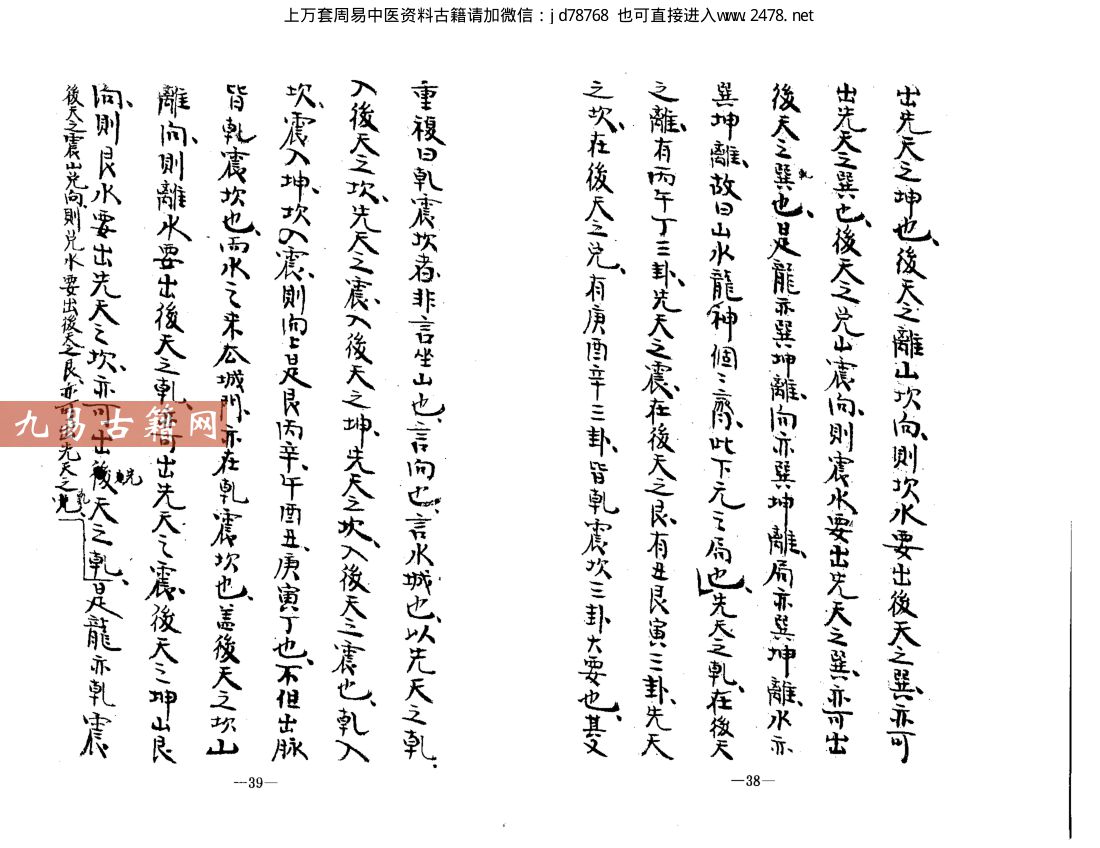 上万套周易中医资料古籍请加微信：jd78768 也可直接进入www.2478.net
出先天之坤也、後天之離山坎向、則坎水要出後天之巽、亦可
出先天之巽也、後天之兌山震向、則震水要出先天之巽、亦可出
後天之巽也、是龍亦巽坤離、向亦巽坤離、局亦巽坤離、水亦
巽坤離、故曰山水龍神個ミ齊、此下元之局也、先天之乾、在後天
之離、有丙午丁三卦、先天之震、在後天之艮、有丑艮寅三卦、先天
之坎、在後天之兌、有庚酉辛三卦、皆乾震坎三卦大要也、其又
—38—
重複曰乾震坎者、非言坐山也、言向也、言水城也、以先天之乾、
入後天之坎、先天之震、入後天之坤、先天之坎、入後天之震也、乾入
坎、震入坤、坎入震、則向上是艮丙辛、午酉丑、庚寅丁也、不但出脈
皆乾震坎也、而水之来去城門、亦在乾震坎也、盖後天之坎山
離向、則離水要出後天之乾、亦可出先天之震、後天之坤山艮
向、則艮水要出先天之坎、亦可出後天之乾、是龍亦乾震
後天之震山兌向、則兌水要出後天之艮、亦可出先天之
—39—
九易古籍网